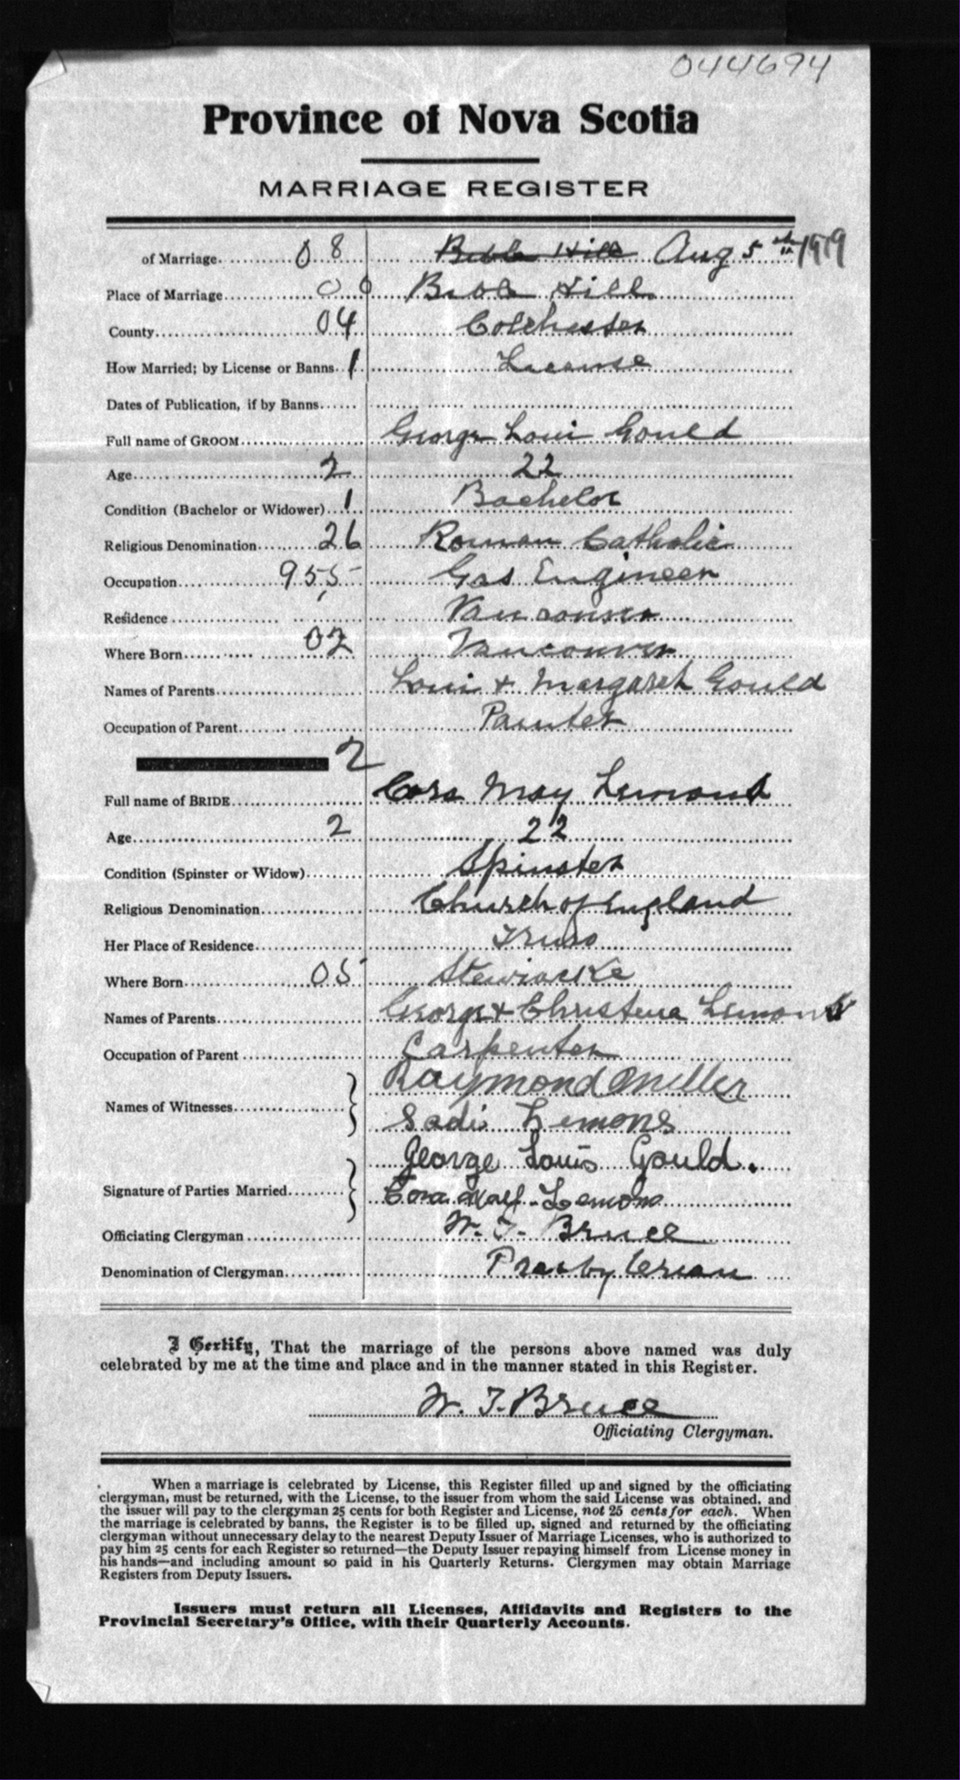 044694
Province of Nova Scotia
MARRIAGE REGISTER
of Marriage 08 Bible Hill Aug 5th 1919
Place of Marriage 00 Bible Hill
County 04 Colchester
How Married; by License or Banns 1 License
Dates of Publication, if by Banns
Full name of GROOM George Loui Gould
Age 2 22
Condition (Bachelor or Widower) 1 Bachelor
Religious Denomination 26 Roman Catholic
Occupation 955 Gas Engineer
Residence Vancouver
Where Born 02 Vancouver
Names of Parents Loui & Margaret Gould
Occupation of Parent Painter
2
Full name of BRIDE Cora May Lemons
Age 2 22
Condition (Spinster or Widow) Spinster
Religious Denomination Church of England
Her Place of Residence Truro
Where Born 05 Stewiacke
Names of Parents George & Christena Lemons
Occupation of Parent Carpenter
Names of Witnesses Raymond Miller
Sadie Lemons
George Louis Gould.
Signature of Parties Married Cora Lemons
Officiating Clergyman W. T. Bruce
Denomination of Clergyman Presbyterian
I Certify, That the marriage of the persons above named was duly
celebrated by me at the time and place and in the manner stated in this Register.
W. T. Bruce
Officiating Clergyman.
When a marriage is celebrated by License, this Register filled up and signed by the officiating
clergyman, must be returned, with the License, to the issuer from whom the said License was obtained, and
the issuer will pay to the clergyman 25 cents for both Register and License, not 25 cents for each. When
the marriage is celebrated by banns, the Register is to be filled up, signed and returned by the officiating
clergyman without unnecessary delay to the nearest Deputy Issuer of Marriage Licenses, who is authorized to
pay him 25 cents for each Register so returned—the Deputy Issuer repaying himself from License money in
his hands—and including amount so paid in his Quarterly Returns. Clergymen may obtain Marriage
Registers from Deputy Issuers.
Issuers must return all Licenses, Affidavits and Registers to the
Provincial Secretary's Office, with their Quarterly Accounts.